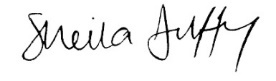 Sheila Duffy